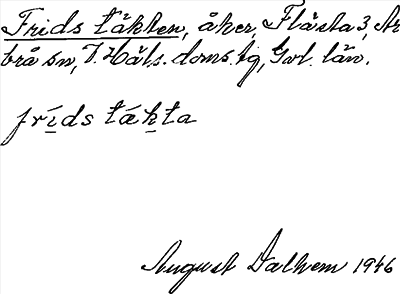 Frids täkten, åker, Flästa 3, Ar
brå sn, V. Häls. doms. tg, Gvl. län.
frids täkta
August Dalhem 1946